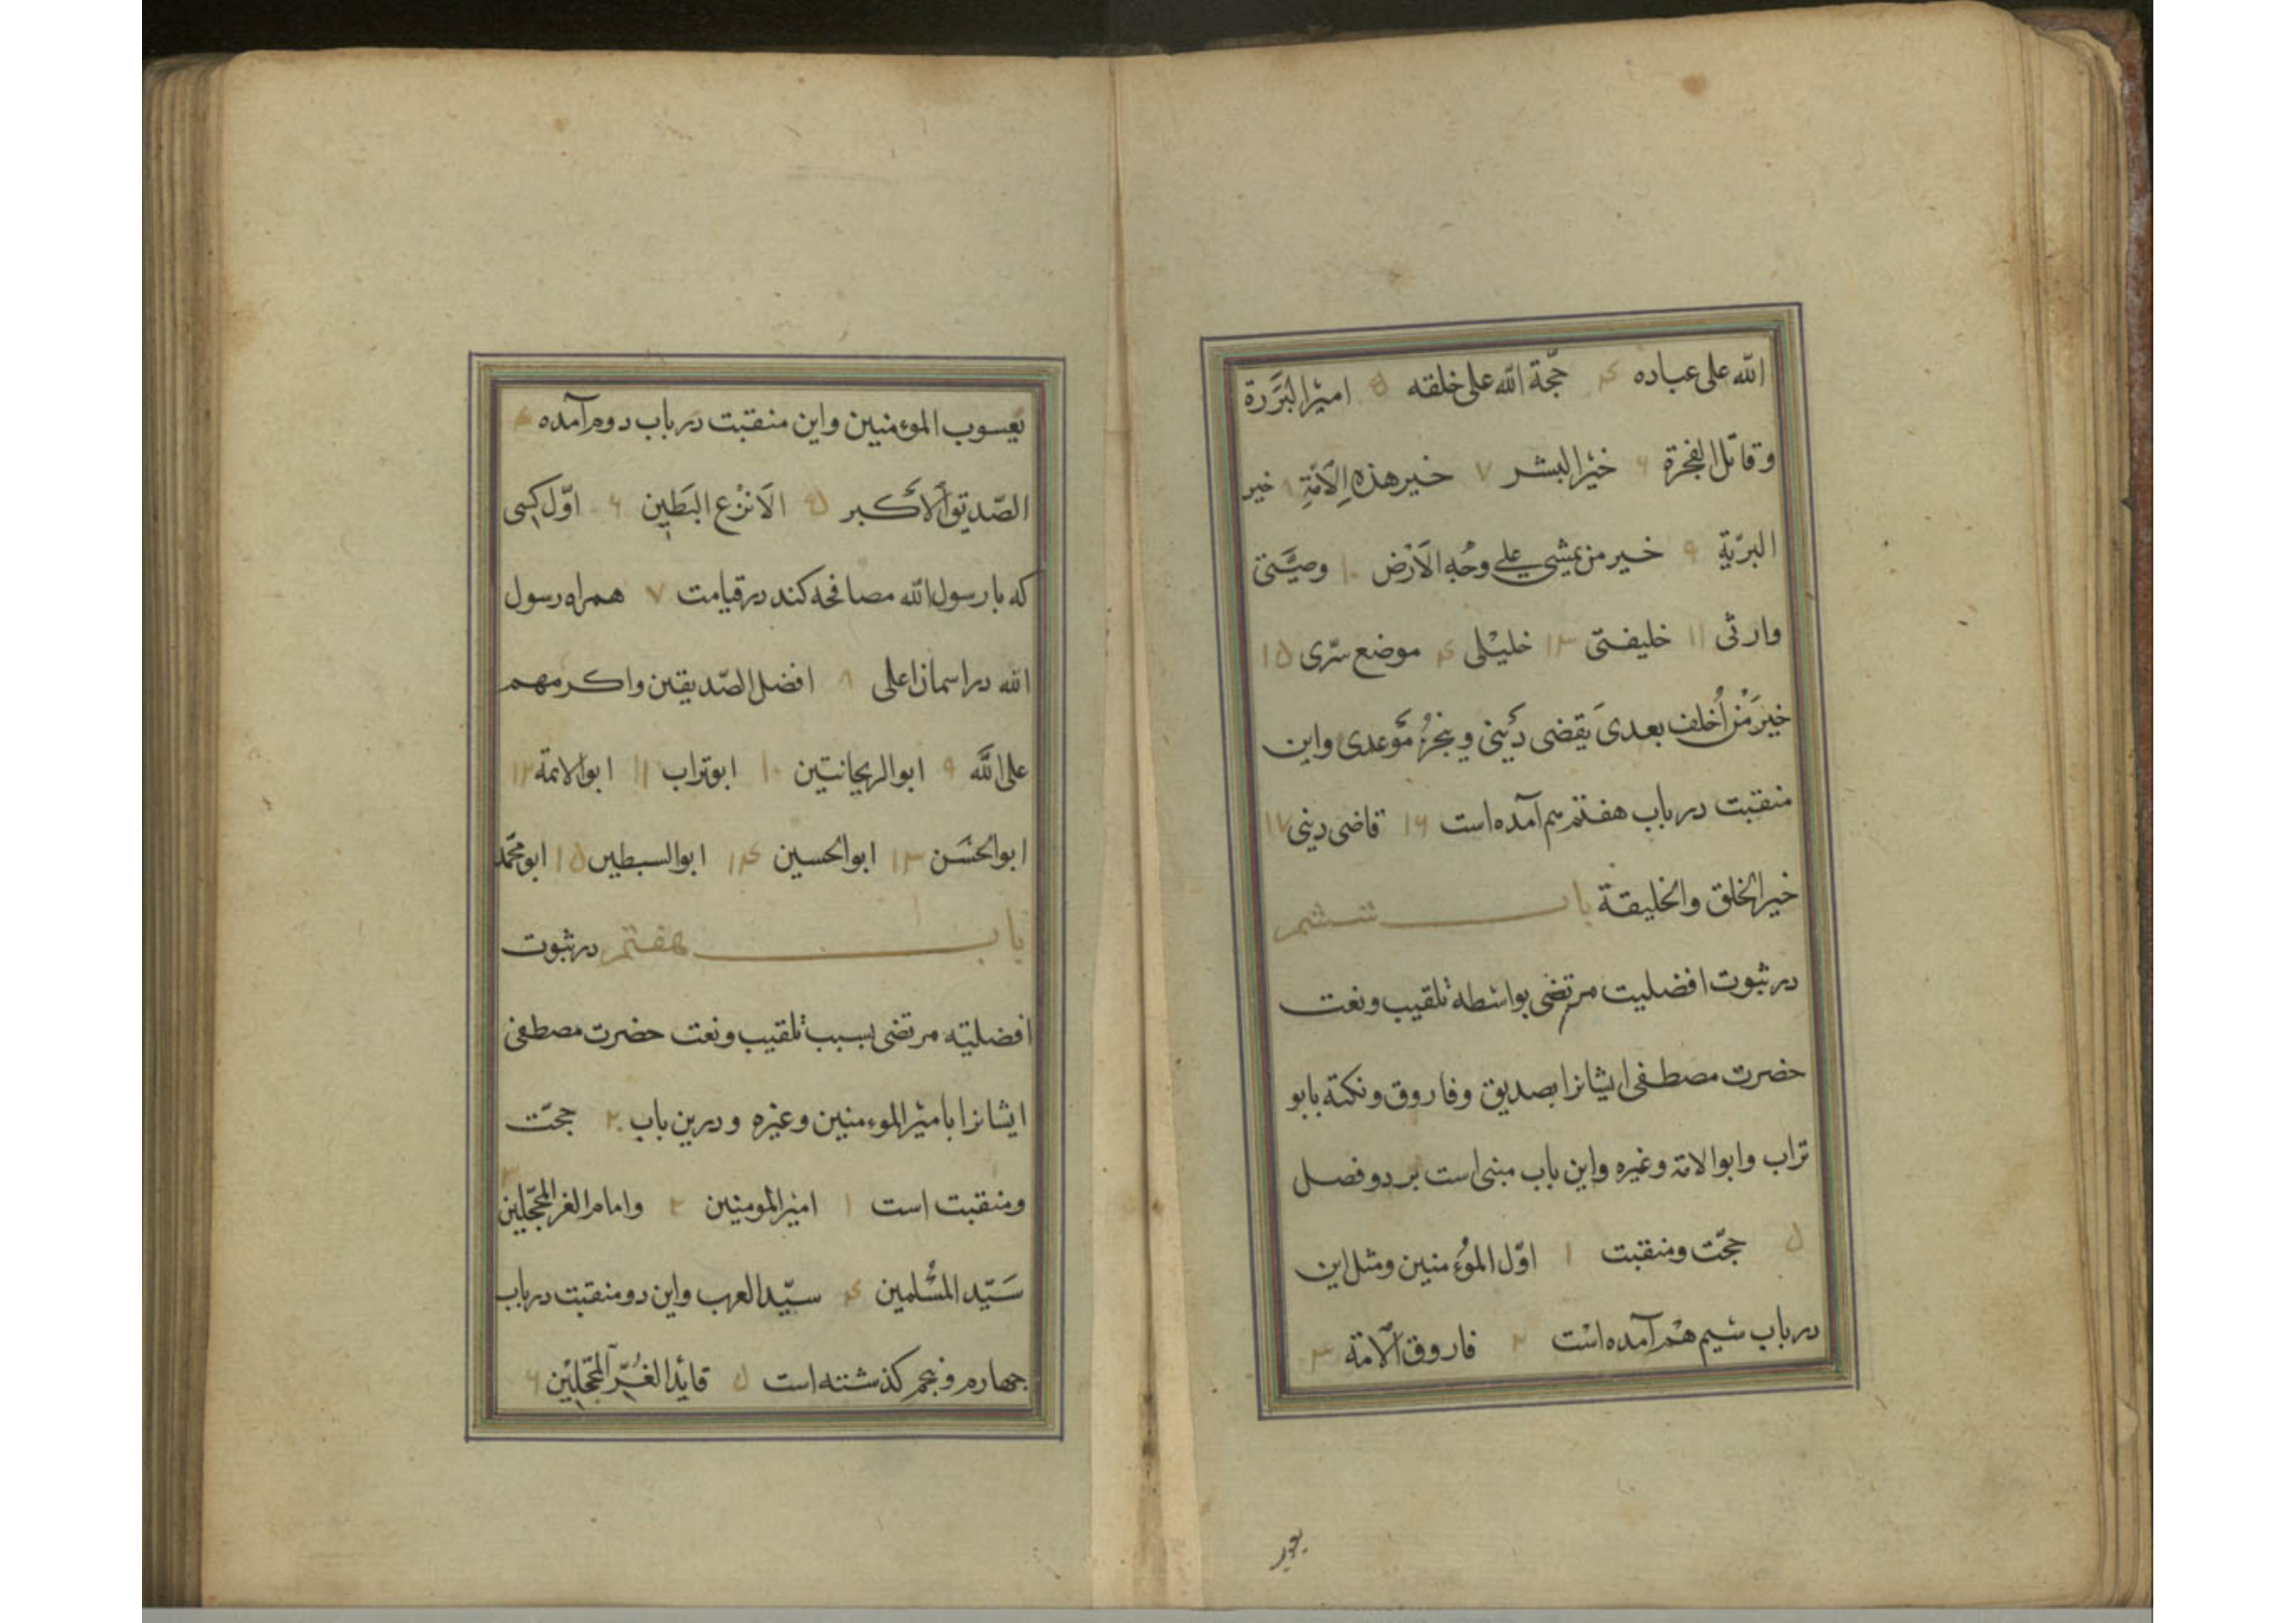 الله علی عباده ۴ حجّة الله علی خلقه ۵ امیر البَرَرة
وقاتل الفجرة ۶ خیر البشر ۷ خیر هذه الاُمّةِ ۸ خیر
البریّةِ ۹ خیر من یمشی علی وجه الاَرْض ۱۰ وصیّتی
وارثی ۱۱ خلیفتی ۱۳ خلیْلی ۴ موضع سرّی ۱۵
خیرَ مَنْ اُخلف بعدی یَقضی دَیْنی وینجزُ مَوعدی واین
منقبت در باب هفتم هم آمده است ۱۶ قاضی دینی ۱۷
خیر الخلق والخلیقة باب ششم
در ثبوت افضلیت مرتضی بواسطه تلقیب ونعت
حضرت مصطفی ایشانرا بصدیق وفاروق ونکتة بابو
تراب وابو الامّة وغیره واین باب مبنی است بر دو فصل
۵ حجّت ومنقبت ۱ اوّل المؤمنین ومثل این
در باب سیم هم آمده است ۲ فاروق الاُمّة ۳
یعسوب الموءمنین واین منقبت در باب دوم آمده ۴
الصّدیق الاَکبر ۵ الاَنْزع البَطین ۶ اوّل کسی
که با رسول الله مصافحه کند در قیامت ۷ همراه رسول
الله در اسمان اعلی ۸ افضل الصّدیقین واکرمهم
علی اللَّه ۹ ابو الریحانتین ۱۰ ابوتراب ۱۱ ابو الائمة ۱۲
ابو الحسَن ۱۳ ابو الحسین ۱۴ ابو السبطین ۱۵ ابو محمّد
باب هفتم در ثبوت
افضلیته مرتضی بسبب تلقیب ونعت حضرت مصطفی
ایشانرا بامیر الموءمنین وغیره ودرین باب ۲۰ حجّت
ومنقبت است ۱ امیر المومنین ۲ وامام الغر المحجّلین ۳
سَیّد المسْلمین ۴ سیّد العرب واین دو منقبت در باب
چهارم وپنجم کذشته است ۵ قائد الغُرّ المحَجّلین ۶